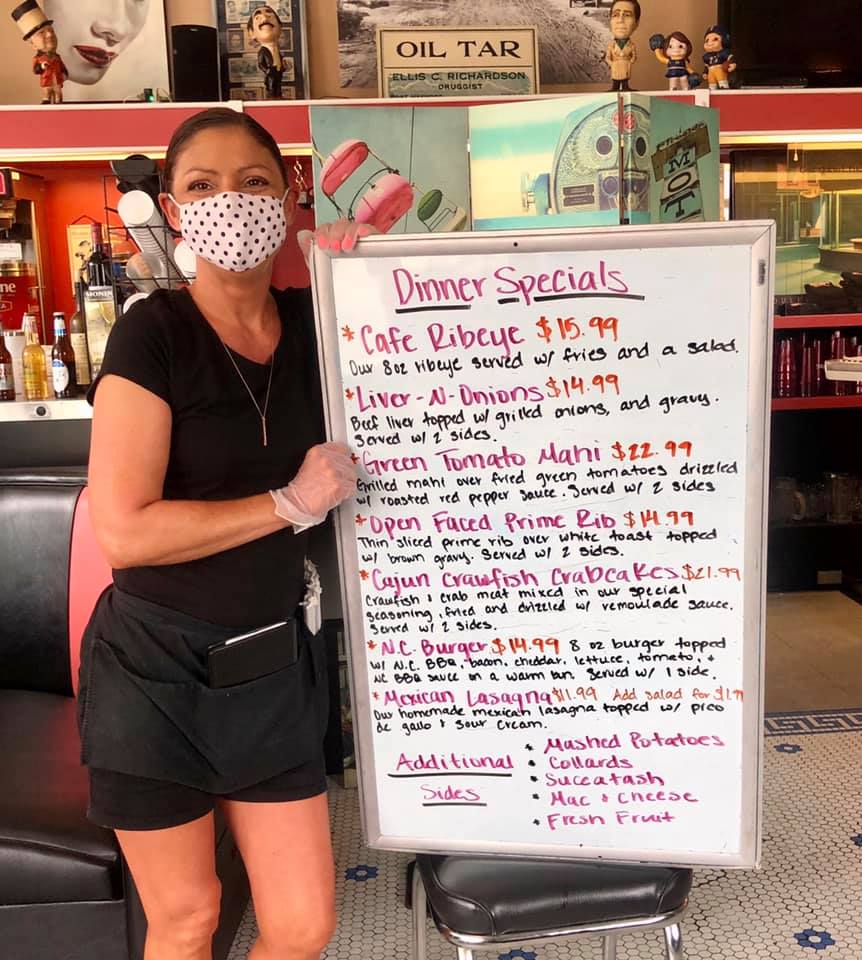 OIL TAR
ELLIS C. RICHARDSON
DRUGGIST
MOT
Dinner Specials
* Cafe Ribeye $15.99
Our 8oz ribeye served w/ fries and a salad.
* Liver-N-Onions $14.99
Beef liver topped w/ grilled onions, and gravy.
Served w/ 2 sides.
* Green Tomato Mahi $22.99
Grilled mahi over fried green tomatoes drizzled
w/ roasted red pepper sauce. Served w/ 2 sides
* Open Faced Prime Rib $14.99
Thin sliced prime rib over white toast topped
w/ brown gravy. Served w/ 2 sides.
* Cajun Crawfish Crabcakes $21.99
Crawfish & crab meat mixed in our special
seasoning, fried and drizzled w/ remoulade sauce.
Served w/ 2 sides.
* N.C. Burger $14.99 8 oz burger topped
w/ N.C. BBQ, bacon, cheddar, lettuce, tomato, &
NC BBQ sauce on a warm bun. Served w/ 1 side.
* Mexican Lasagna $11.99 Add salad for $1.99
Our homemade mexican lasagna topped w/ pico
de gallo & sour cream.
Additional Sides
• Mashed Potatoes
• Collards
• Succatash
• Mac & Cheese
• Fresh Fruit